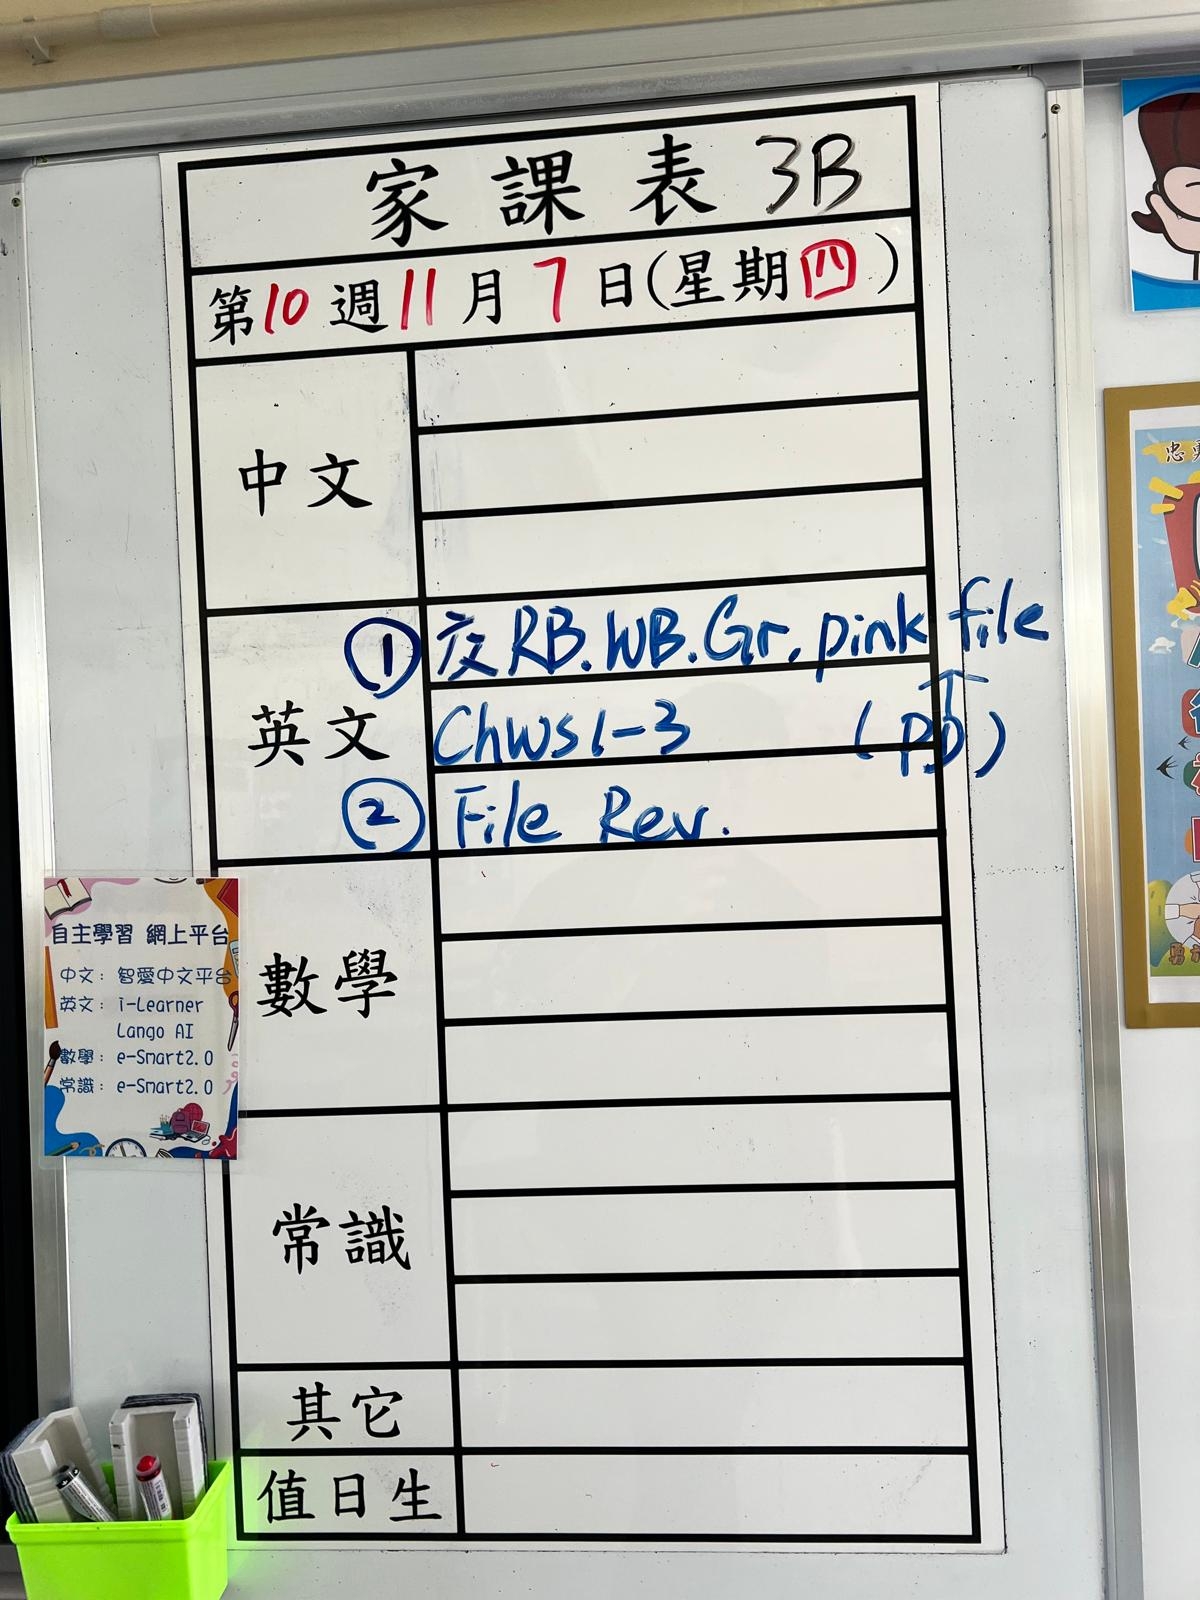 家課表 3B
第10週11月7日(星期四)
中文
英文
① 交 RB. WB. Gr. pink file
Chws1-3 (PD)
② File Rev.
數學
常識
其它
值日生
自主學習 網上平台
中文：智愛中文平台
英文：i-Learner
Lango AI
數學：e-Smart2.0
常識：e-Smart2.0